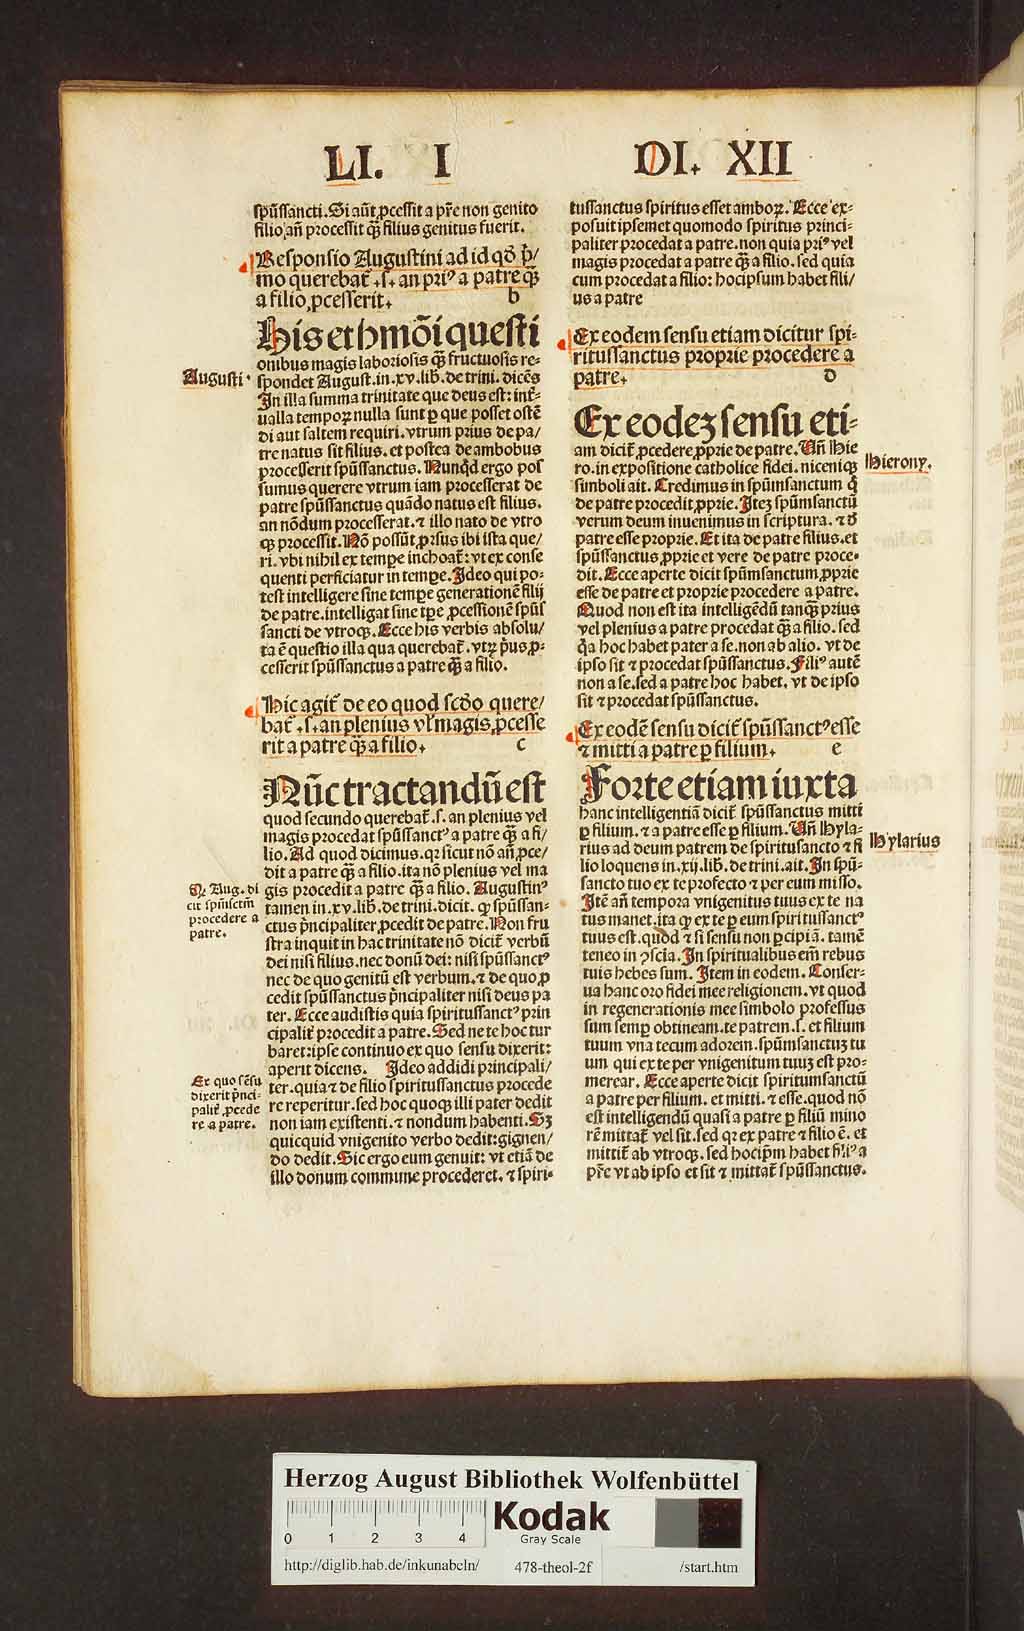 LI. I
DI. XII
spūssancti. Si aūt ꝓcessit a pr̄e non genito
filio, an̄ processit qͣ̄ filius genitus fuerit.
Responsio Augustini ad id qđ p̄/
mo querebat̄ .s. an priꝰ a patre qͣ̄
a filio, ꝓcesserit. b
His et hmōi questi
onibus magis laboriosis qͣ̄ fructuosis re-
spondet August. in .xv. lib. de trini. dicēs
In illa summa trinitate que deus est: int̄-
ualla tempoꝝ nulla sunt ꝑ que posset ostē
di aut saltem requiri. vtrum prius de pa/
tre natus sit filius. et postea de ambobus
processerit spūssanctus. Nunqͥd ergo pos
sumus querere vtrum iam processerat de
patre spūssanctus quādo natus est filius.
an nōdum processerat. ⁊ illo nato de vtro
qꝫ processit. Nō possūt ꝓrsus ibi ista que/
ri. vbi nihil ex tempe inchoat̄: vt ex conse
quenti perficiatur in tempe. Ideo qui po-
test intelligere sine tempe generationē filij
de patre. intelligat sine tp̄e ꝓcessionē spūs
sancti de vtroqꝫ. Ecce his verbis absolu/
ta ē questio illa qua querebat̄. vtꝝ p̄us ꝓ-
cesserit spūssanctus a patre qͣ̄ a filio.
Hic agit̄ de eo quod scđo quere/
bat̄ .s. an plenius vl̄ magis, ꝓcesse
rit a patre qͣ̄ a filio. c
Nūc tractandū est
quod secundo querebat̄. s. an plenius vel
magis procedat spūssanctꝰ a patre qͣ̄ a fi/
lio. Ad quod dicimus. qꝛ sicut nō an̄ ꝓce/
dit a patre qͣ̄ a filio. ita nō plenius vel ma
gis procedit a patre qͣ̄ a filio. Augustinꝰ
tamen in .xv. lib. de trini. dicit. qꝙ spūssan-
ctus p̄ncipaliter ꝓcedit de patre. Non fru
stra inquit in hac trinitate nō dicit̄ verbū
dei nisi filius. nec donū dei: nisi spūssanctꝰ
nec de quo genitū est verbum. ⁊ de quo ꝓ
cedit spūssanctus p̄ncipaliter nisi deus pa
ter. Ecce audistis quia spiritussanctꝰ prin
cipalit̄ procedit a patre. Sed ne te hoc tur
baret: ipse continuo ex quo sensu dixerit:
aperit dicens. Ideo addidi principali/
ter. quia ⁊ de filio spiritussanctus procede
re reperitur. sed hoc quoqꝫ illi pater dedit
non iam existenti. ⁊ nondum habenti. Sꝫ
quicquid vnigenito verbo dedit: gignen/
do dedit. Sic ergo eum genuit: vt etiā de
illo donum commune procederet. ⁊ spiri-
Augusti.
Q. Aug. di
cit spūmsctm
procedere a
patre.
Ex quo sēsu
dixerit p̄nci-
palit̄ ꝓcede
re a patre.
tussanctus spiritus esset amboꝝ. Ecce ex-
posuit ipsemet quomodo spiritus princi-
paliter procedat a patre. non quia priꝰ vel
magis procedat a patre qͣ̄ a filio. sed quia
cum procedat a filio: hocipsum habet fili/
us a patre
Ex eodem sensu etiam dicitur spi-
ritussanctus proprie procedere a
patre. d
Ex eodeꝫ sensu eti-
am dicit̄ ꝓcedere ꝓprie de patre. Un̄ Hie
ro. in expositione catholice fidei. niceniqꝫ
simboli ait. Credimus in spūmsanctum qͥ
de patre procedit ꝓprie. Iteꝫ spūmsanctū
verum deum inuenimus in scriptura. ⁊ đ
patre esse proprie. Et ita de patre filius. et
spūssanctus ꝓprie et vere de patre proce-
dit. Ecce aperte dicit spūmsanctum ꝓprie
esse de patre et proprie procedere a patre.
Quod non est ita intelligēdū tanqͣ̄ prius
vel plenius a patre procedat qͣ̄ a filio. sed
qͥa hoc habet pater a se. non ab alio. vt de
ipso sit ⁊ procedat spūssanctus. Filiꝰ autē
non a se. sed a patre hoc habet. vt de ipso
sit ⁊ procedat spūssanctus.
Ex eodē sensu dicit̄ spūssanctꝰ esse
⁊ mitti a patre ꝑ filium. e
Forte etiam iuxta
hanc intelligentiā dicit̄ spūssanctus mitti
ꝑ filium. ⁊ a patre esse ꝑ filium. Un̄ Hyla-
rius ad deum patrem de spiritusancto ⁊ fi
lio loquens in .xij. lib. de trini. ait. In spū-
sancto tuo ex te profecto ⁊ per eum misso.
Itē an̄ tempora vnigenitus tuus ex te na
tus manet. ita qꝙ ex te ꝑ eum spiritussanctꝰ
tuus est. quod ⁊ si sensu non ꝑcipiā. tamē
teneo in ꝯscia. In spiritualibus em̄ rebus
tuis hebes sum. Item in eodem. Conser-
ua hanc oro fidei mee religionem. vt quod
in regenerationis mee simbolo professus
sum semꝑ obtineam. te patrem .s. et filium
tuum vna tecum adorem. spūmsanctuꝫ tu
um qui ex te per vnigenitum tuuꝫ est pro-
merear. Ecce aperte dicit spiritumsanctū
a patre per filium. et mitti. ⁊ esse. quod nō
est intelligendū quasi a patre ꝑ filiū mino
rē mittat̄ vel sit. sed qꝛ ex patre ⁊ filio ē. et
mittit̄ ab vtroqꝫ. sed hocip̄m habet filiꝰ a
pr̄e vt ab ipso et sit ⁊ mittat̄ spūssanctus.
Hierony.
Hylarius
Herzog August Bibliothek Wolfenbüttel
0 1 2 3 4
Kodak
Gray Scale
http://diglib.hab.de/inkunabeln/ 478-theol-2f /start.htm